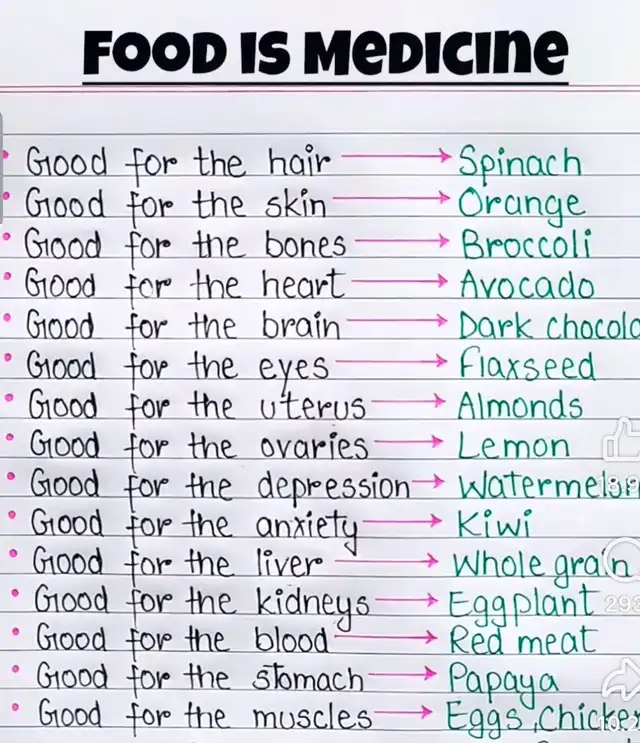 FOOD IS MEDICINE
Good for the hair → Spinach
Good for the skin → Orange
Good for the bones → Broccoli
Good for the heart → Avocado
Good for the brain → Dark chocola
Good for the eyes → flaxseed
Good for the uterus → Almonds
Good for the ovaries → Lemon
Good for the depression → Watermelon
Good for the anxiety → Kiwi
Good for the liver → Whole grain
Good for the kidneys → Eggplant
Good for the blood → Red meat
Good for the stomach → Papaya
Good for the muscles → Eggs, Chicken